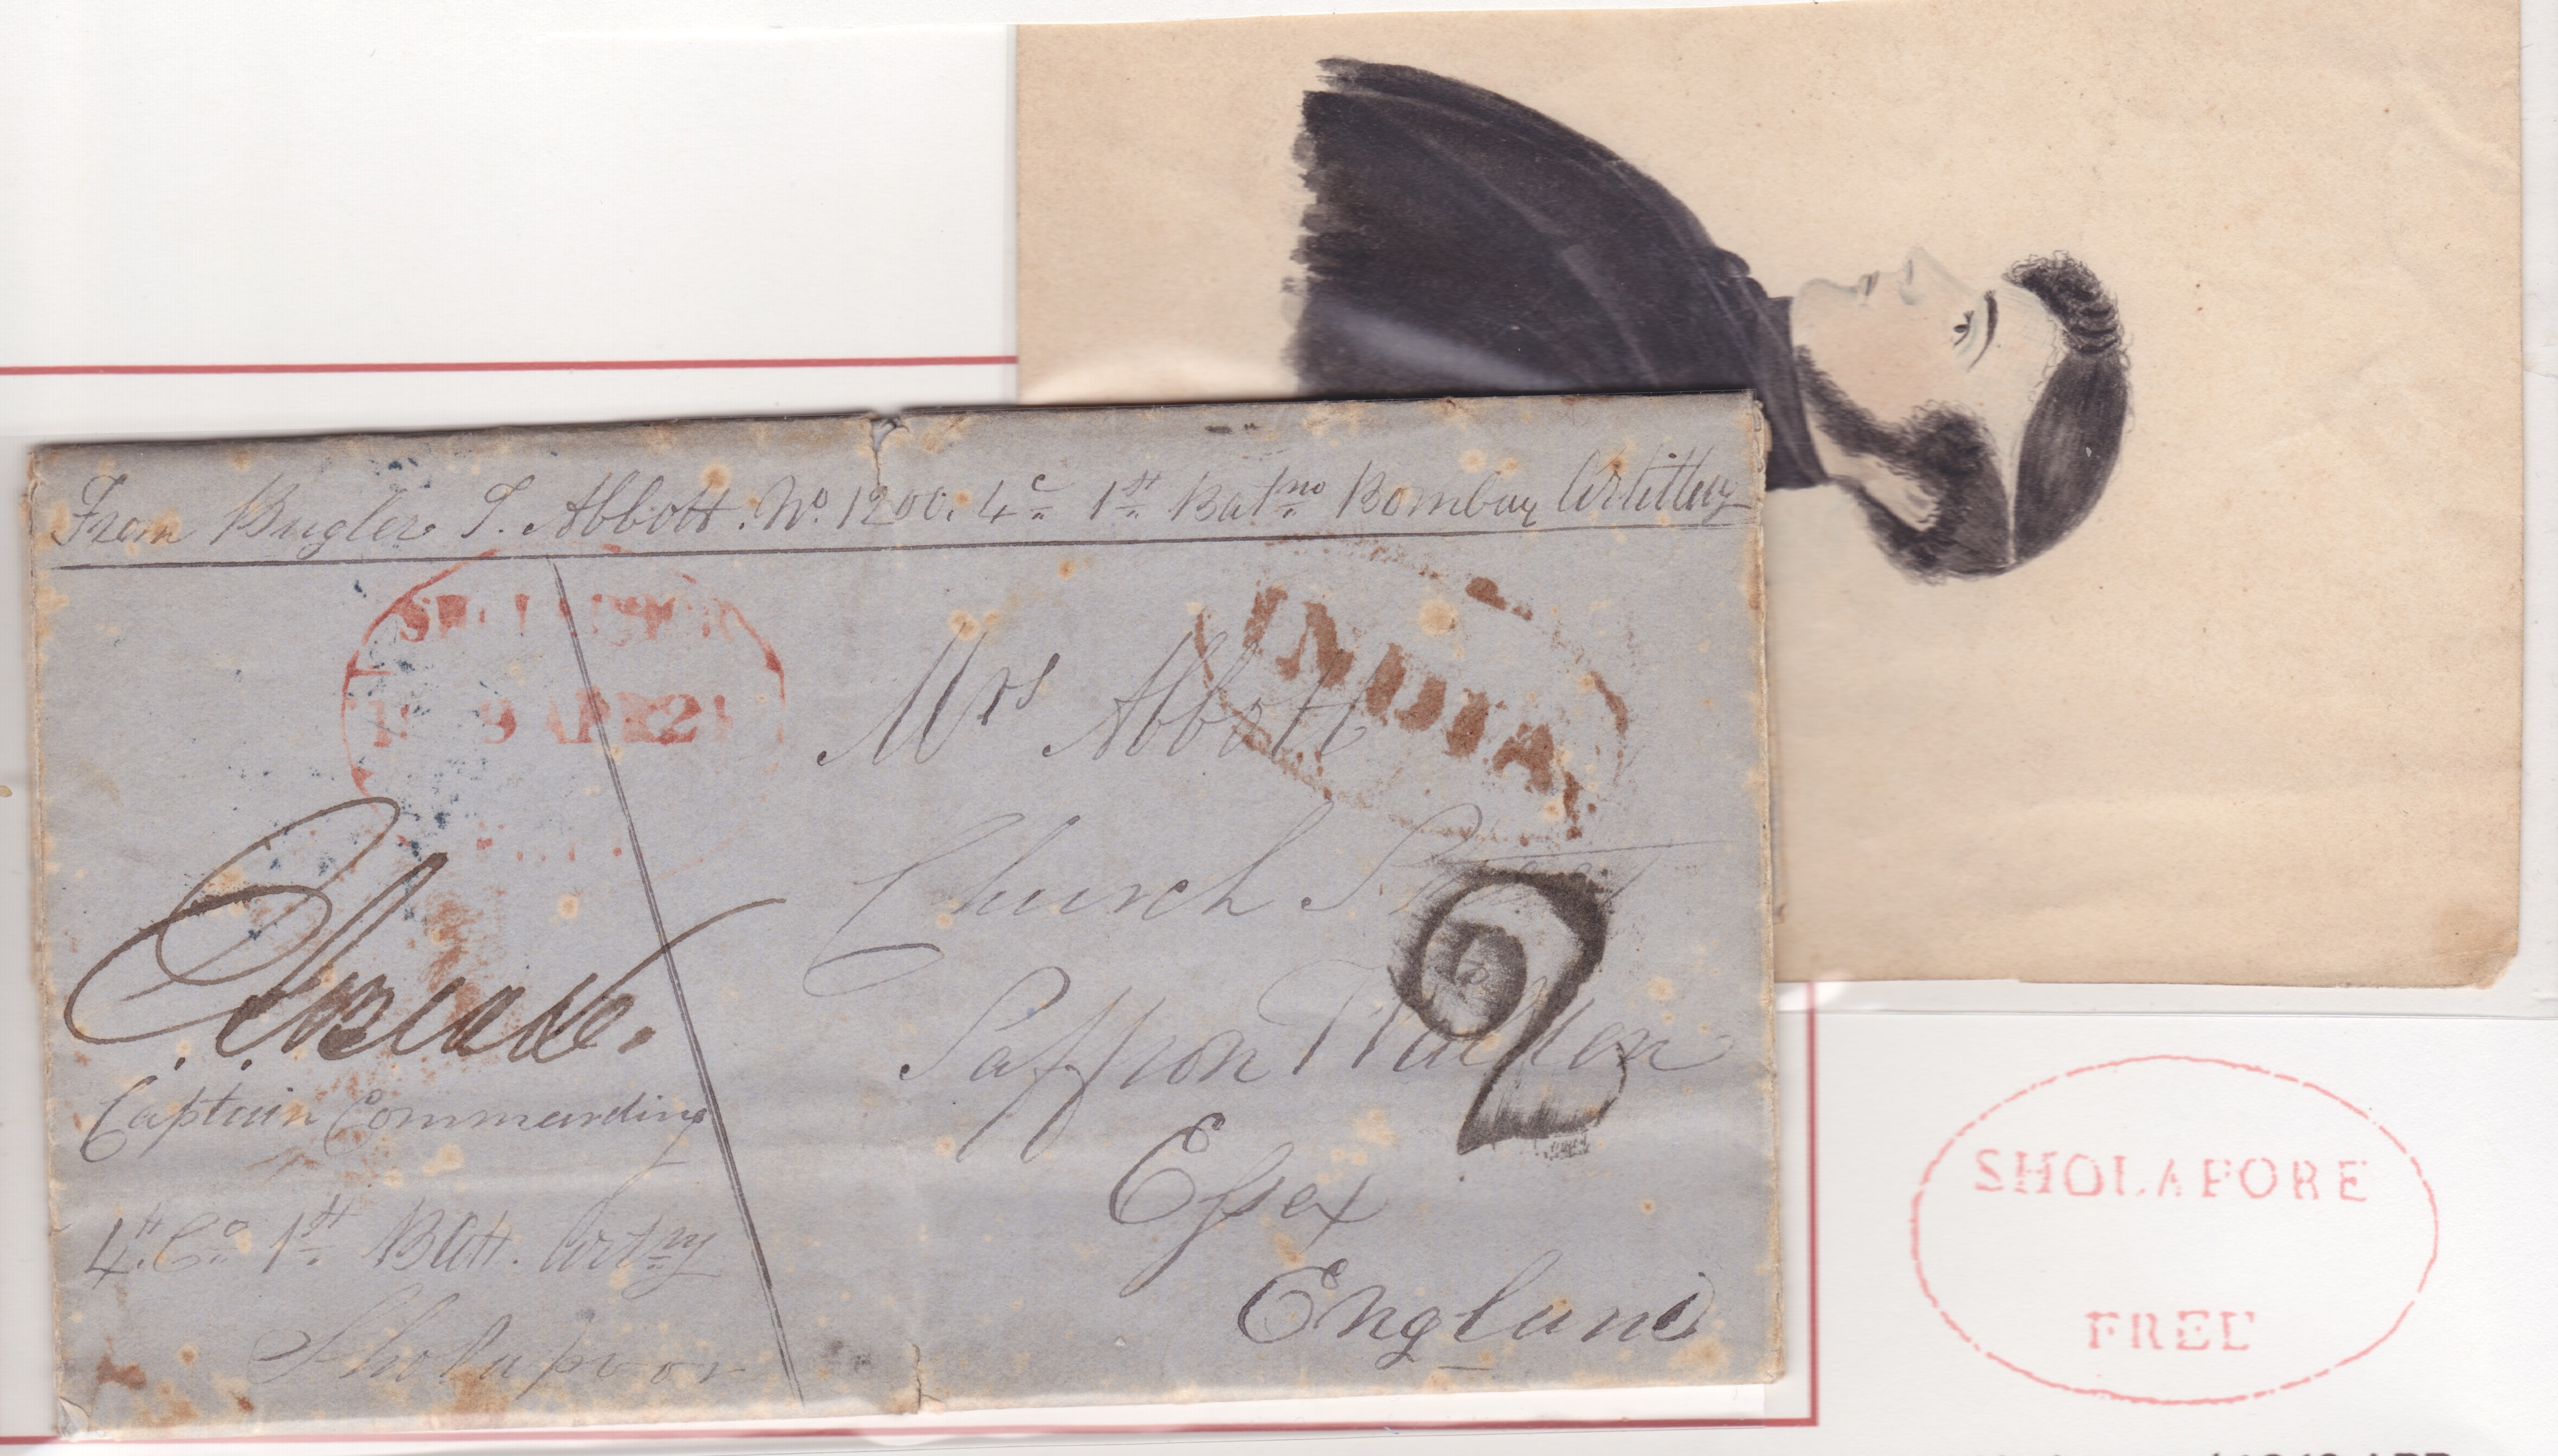 From Bugler T. Abbott. No. 1200. 4c 1st Batno Bombay Artillery
9 APR 21
INDIA
Mrs Abbott
Church Street
Saffron Walden
Essex
England
2
Captain Commanding
4th Co 1st Batt. Artny
Sholapoor
SHOLAPORE
FREE